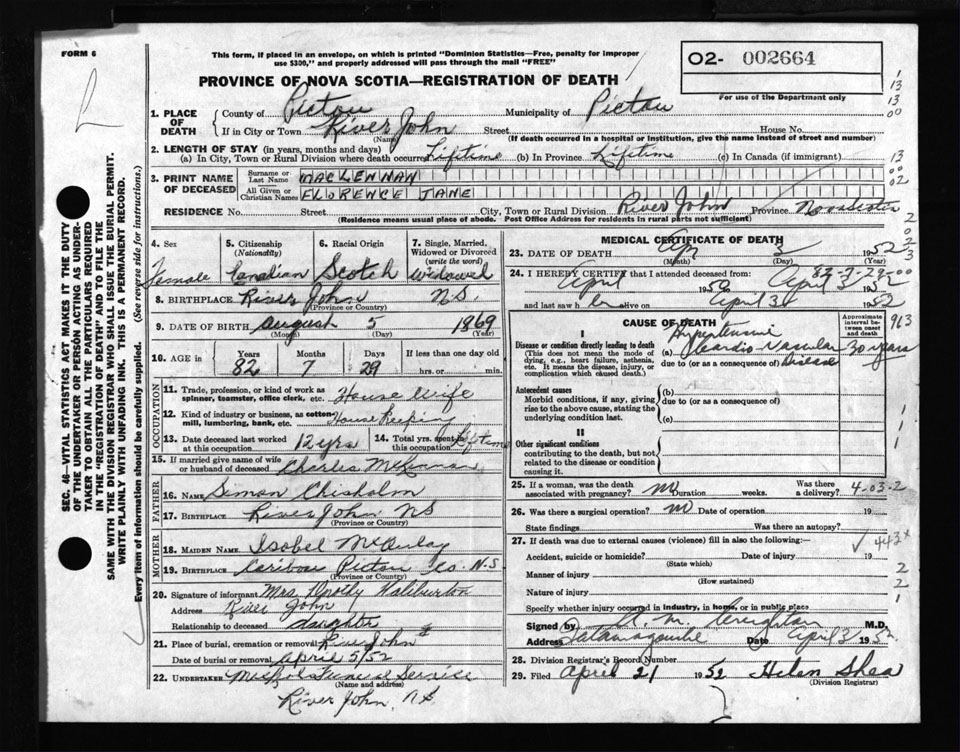 FORM 6
This form, if placed in an envelope, on which is printed "Dominion Statistics—Free, penalty for improper
use $300," and properly addressed will pass through the mail "FREE"
O2- 002664
PROVINCE OF NOVA SCOTIA—REGISTRATION OF DEATH
For use of the Department only
1. PLACE OF DEATH County of Pictou Municipality of Pictou
If in City or Town River John Street House No.
(Name) (If death occurred in a hospital or institution, give the name instead of street and number)
2. LENGTH OF STAY (in years, months and days)
(a) In City, Town or Rural Division where death occurred Lifetime (b) In Province Lifetime (c) In Canada (if immigrant)
3. PRINT NAME OF DECEASED Surname or Last Name MACLENNAN
All Given or Christian Names FLORENCE JANE
RESIDENCE No. Street City, Town or Rural Division River John Province Nova Scotia
(Residence means usual place of abode. Post Office Address for residents in rural parts not sufficient)
4. Sex 5. Citizenship (Nationality) 6. Racial Origin 7. Single, Married, Widowed or Divorced (write the word)
Female Canadian Scotch Widowed
8. BIRTHPLACE River John N.S.
(Province or Country)
9. DATE OF BIRTH August 5 1869
(Month) (Day) (Year)
10. AGE in Years Months Days If less than one day old
82 7 29 hrs. or min.
OCCUPATION
11. Trade, profession, or kind of work as spinner, teamster, office clerk, etc. House wife
12. Kind of industry or business, as cotton-mill, lumbering, bank, etc. House Keeping
13. Date deceased last worked at this occupation 12 yrs 14. Total yrs. spent in this occupation Lifetime
15. If married give name of wife or husband of deceased Charles
FATHER
16. NAME Simon Chisholm
17. BIRTHPLACE River John NS
(Province or Country)
MOTHER
18. MAIDEN NAME Isobel McAulay
19. BIRTHPLACE Caribou Pictou Co. N.S
(Province or Country)
20. Signature of informant Mrs. Dorothy Haliburton
Address River John
Relationship to deceased daughter
21. Place of burial, cremation or removal River John
Date of burial or removal April 5/52
22. UNDERTAKER Funeral Service
(Name and address)
River John, NS
MEDICAL CERTIFICATE OF DEATH
23. DATE OF DEATH 1952
(Month) (Day) (Year)
24. I HEREBY CERTIFY that I attended deceased from 82-7-29-00
April 1950 to April 3 1952
and last saw h er alive on April 3 1952
CAUSE OF DEATH
Approximate interval between onset and death
963
I
Disease or condition directly leading to death
(This does not mean the mode of dying, e.g., heart failure, asthenia, etc. It means the disease, injury, or complication which caused death.)
(a) Hypertensive Cardio-Vascular Disease 30 years
due to (or as a consequence of)
Antecedent causes
Morbid conditions, if any, giving rise to the above cause, stating the underlying condition last.
(b)
due to (or as a consequence of)
(c)
II
Other significant conditions
contributing to the death, but not related to the disease or condition causing it.
25. If a woman, was the death associated with pregnancy? no Duration weeks. Was there a delivery? 4-03-2
26. Was there a surgical operation? no Date of operation 19
State findings Was there an autopsy?
27. If death was due to external causes (violence) fill in also the following:—
443
Accident, suicide or homicide? Date of injury 19
(State which)
Manner of injury
(How sustained)
Nature of injury
Specify whether injury occurred in industry, in home, or in public place
Signed by A. M. Creighton M.D.
Address Tatamagouche Date April 3 1952
28. Division Registrar's Record Number
29. Filed April 21 1952 Helen Shea
(Division Registrar)
SEC. 46—VITAL STATISTICS ACT MAKES IT THE DUTY
OF THE UNDERTAKER OR PERSON ACTING AS UNDER-
TAKER TO OBTAIN ALL THE PARTICULARS REQUIRED
IN THE "REGISTRATION OF DEATH" AND TO FILE THE
SAME WITH THE DIVISION REGISTRAR WHO SHALL ISSUE THE BURIAL PERMIT.
WRITE PLAINLY WITH UNFADING INK. THIS IS A PERMANENT RECORD.
Every item of information should be carefully supplied. (See reverse side for instructions.)